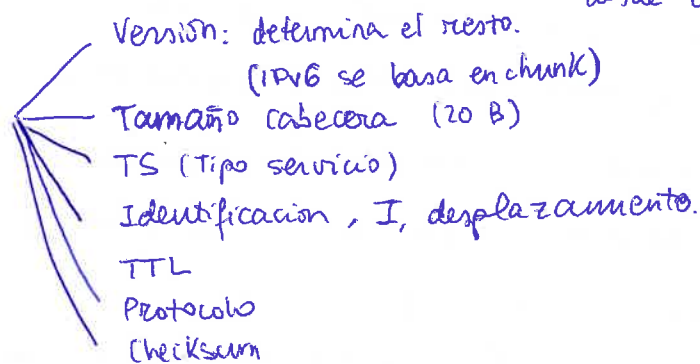 Versión: determina el resto.
(IPV6 se basa en chunk)
Tamaño cabecera (20 B)
TS (Tipo servicio)
Identificacion, I, desplazamiento.
TTL
Protocolo
Checksum